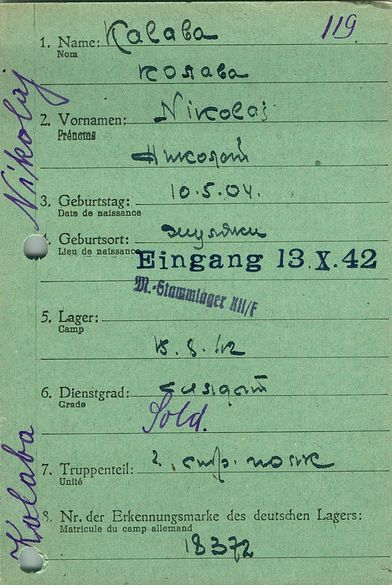 119
1. Name: Kalaba
Nom
колава
2. Vornamen: Nikolaj
Prénoms
Николай
3. Geburtstag: 10.5.04.
Date de naissance
4. Geburtsort:
Lieu de naissance
Eingang 13.X.42
M.-Stammlager XII/F
5. Lager:
Camp
15.8.42
6. Dienstgrad: солдат
Grade
Sold.
7. Truppenteil: 2. стр. полк
Unité
8. Nr. der Erkennungsmarke des deutschen Lagers:
Matricule du camp allemand
18372
Nikolaj
Kolaba